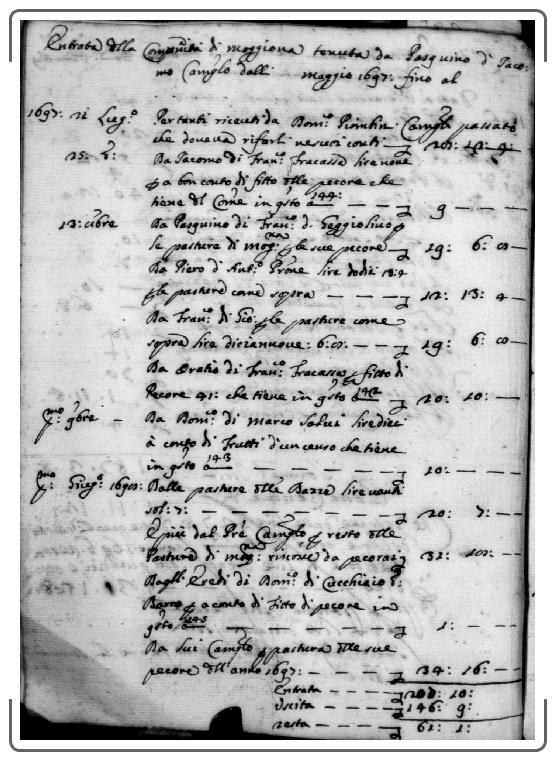 Entrata della Comunità di Moggiona tenuta da Pasquino di Jaco:
mo Camglo dalli maggio 1697: fino al
1697: 21 Lug.º Pertanti riceuti da Bom.º camgli passato
che doveva rifarli ne suoi conti
25: d: Da Jacomo di Fran.º Fracassa lire nove
p a bon conto di fitto delle pecore che
tiene del Come in qsto a 144: 9 — — —
13: 8bre Da Pasquino di Fran.º d.
le pasture di mog.na p le sue pecore — 19: 6: 8 —
Da Piero d Ant.º lire dodici 13:4
p le pasture come sopra — — — — 12: 13: 4 —
Da Fran.º di Gio: p le pasture come
sopra lire diciannove: 6:8: — — — 19: 6: 8 —
Da Oratio di Fran.º Fracassa p fitto di
Pecore 41: che tiene in qsto a 142 20: 10: —
p.mo 9bre — Da Bom.º di Marco Salvi lire dieci
à conto di Frutti d'un censo che tiene
in qsto a 143 — — — — — 10: — — —
p.mo Giug.º 1698: Dalle pasture delle Bazze lire venti
sol: 7: — — — — — — — 20: 7: —
E più dal Pre Camglo p resto delle
Pasture di mog.na riscove da pecorai 31: 10: —
Dagli Eredi di Bom.º di Cacchiaio
p a conto di Fitto di pecore in
qsto a 145 — — — — — 1: — —
Da lui Camglo p pastura delle sue
pecore dell'anno 1697: — — — — 34: 16: —
Entrata — — — — 208: 10:
Uscita — — — — 146: 9:
resta — — — — 61: 1: